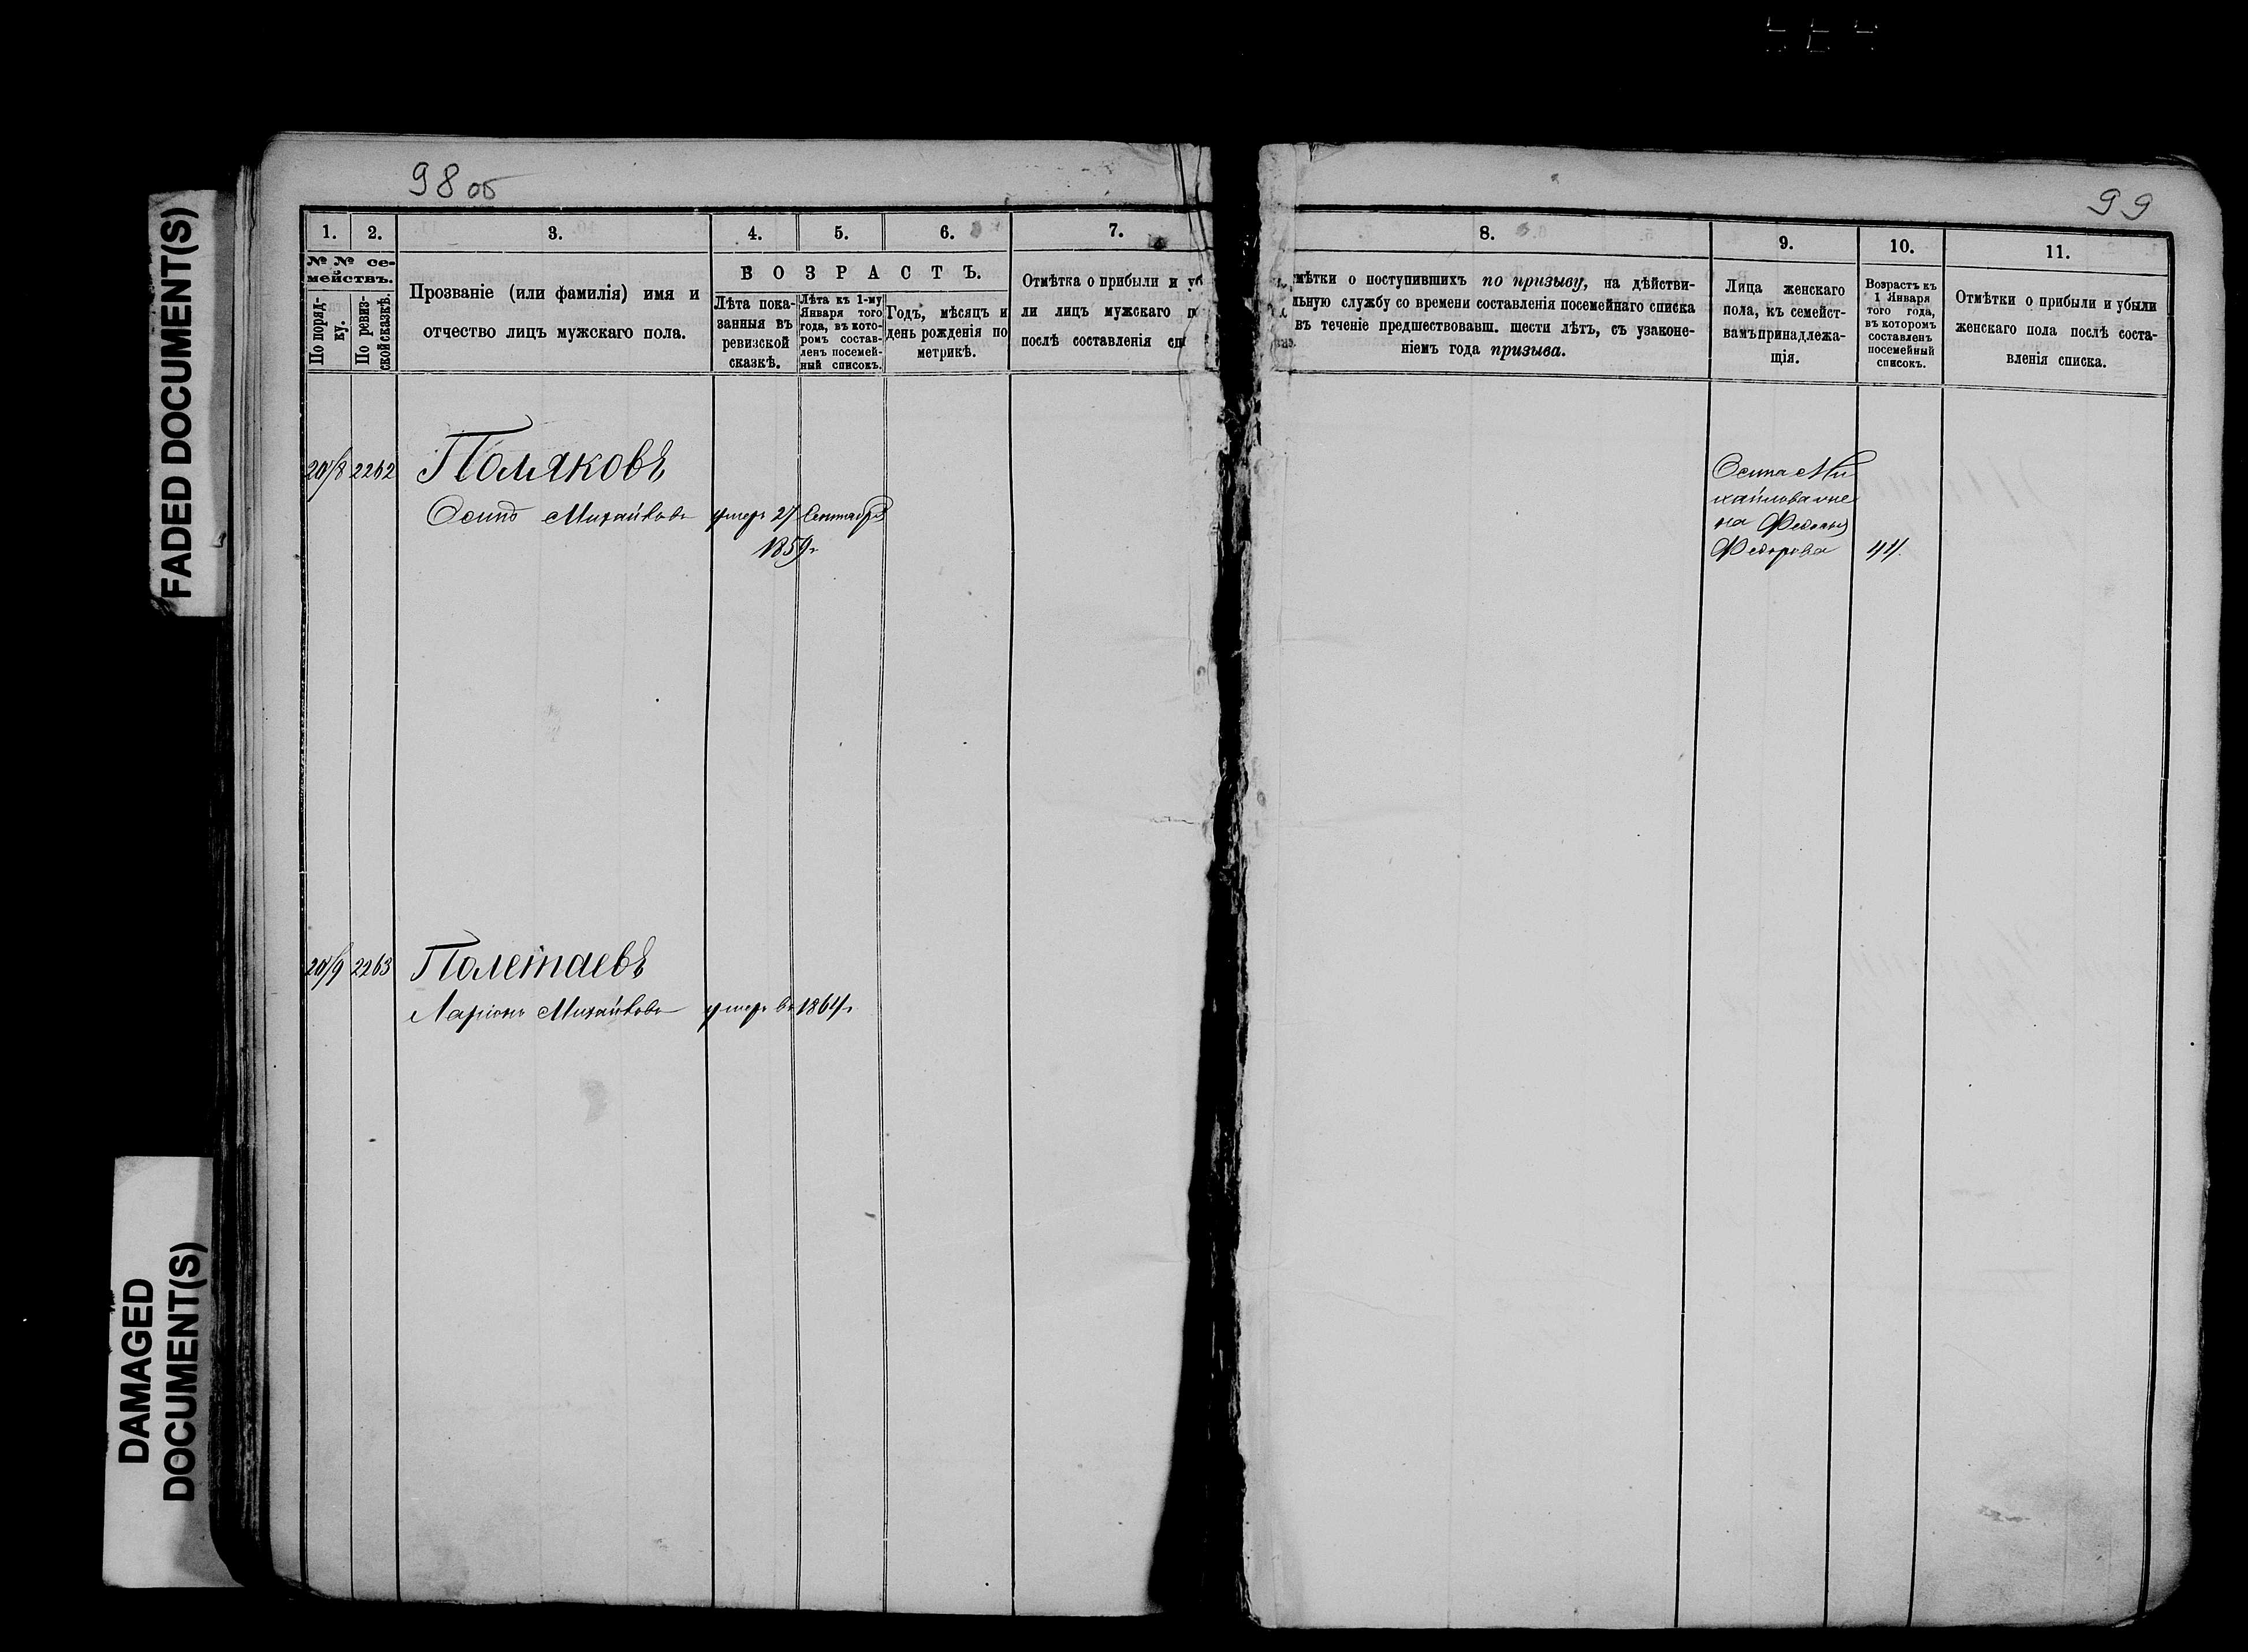 FADED DOCUMENT(S)
DAMAGED
DOCUMENT(S)
98 об
1. 2. 3. 4. 5. 6. 7.
№ № се-
мействъ.
По поряд-
ку.
По ревиз-
ской сказкѣ.
Прозваніе (или фамилія) имя и
отчество лицъ мужскаго пола.
ВОЗРАСТЪ.
Лѣта пока-
занныя въ
ревизской
сказкѣ.
Лѣта къ 1-му
Января того
года, въ кото-
ромъ состав-
ленъ посемей-
ный списокъ.
Годъ, мѣсяцъ и
день рожденія по
метрикѣ.
Отмѣтка о прибыли и уб
ли лицъ мужскаго п
послѣ составленія сп
2262
Поляковъ
Осипъ Михайловъ умеръ 27 Сентабря
1859г
2263
Полетаевъ
Ларіонъ Михайловъ умеръ въ 1864г
99
8. 9. 10. 11.
мѣтки о поступившихъ по призыву, на дѣйстви-
льную службу со времени составленія посемейнаго списка
въ теченіе предшествовавш. шести лѣтъ, съ узаконе-
ніемъ года призыва.
Лица женскаго
пола, къ семейст-
вамъ принадлежа-
щія.
Возрастъ къ
1 Января
того года,
въ которомъ
составленъ
посемейный
списокъ.
Отмѣтки о прибыли и убыли
женскаго пола послѣ соста-
вленія списка.
Осипа Ми
хайлова же
на
Федорова 44